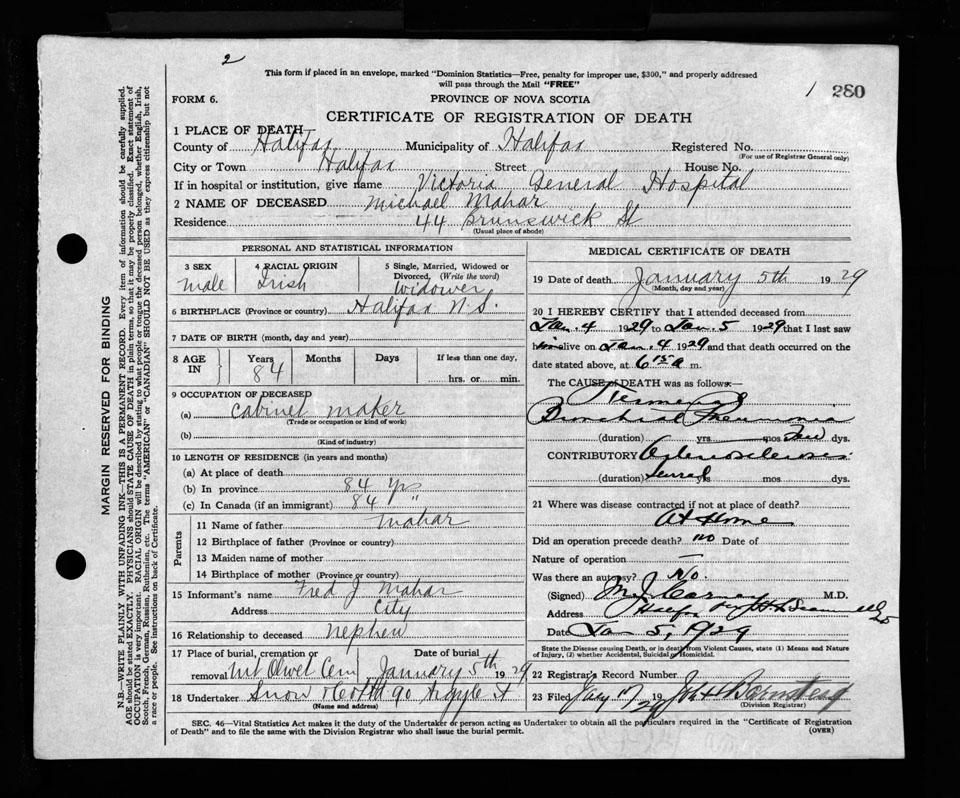 2
This form if placed in an envelope, marked "Dominion Statistics—Free, penalty for improper use, $300," and properly addressed
will pass through the Mail "FREE"
1 280
FORM 6.
PROVINCE OF NOVA SCOTIA
CERTIFICATE OF REGISTRATION OF DEATH
1 PLACE OF DEATH
County of Halifax Municipality of Halifax Registered No.
(For use of Registrar General only)
City or Town Halifax Street House No.
If in hospital or institution, give name Victoria General Hospital
2 NAME OF DECEASED Michael Mahar
Residence 44 Brunswick St
(Usual place of abode)
PERSONAL AND STATISTICAL INFORMATION
3 SEX
male
4 RACIAL ORIGIN
Irish
5 Single, Married, Widowed or
Divorced, (Write the word)
widower
6 BIRTHPLACE (Province or country) Halifax N.S.
7 DATE OF BIRTH (month, day and year)
8 AGE IN
Years
84
Months
Days
If less than one day,
hrs. or min.
9 OCCUPATION OF DECEASED
(a) cabinet maker
(Trade or occupation or kind of work)
(b)
(Kind of industry)
10 LENGTH OF RESIDENCE (in years and months)
(a) At place of death
(b) In province 84 yrs
(c) In Canada (if an immigrant) 84 "
Parents
11 Name of father Mahar
12 Birthplace of father (Province or country)
13 Maiden name of mother
14 Birthplace of mother (Province or country)
15 Informant's name Fred J Mahar
Address City
16 Relationship to deceased nephew
17 Place of burial, cremation or removal Mt Olivet Cem
Date of burial
January 5th 1929
18 Undertaker Snow 90 Argyle St
(Name and address)
MEDICAL CERTIFICATE OF DEATH
19 Date of death January 5th 1929
(Month, day and year)
20 I HEREBY CERTIFY that I attended deceased from
Jan. 4 1929 to Jan. 5 1929 that I last saw
him alive on Jan. 4 1929 and that death occurred on the
date stated above, at 6 15 a m.
The CAUSE of DEATH was as follows:
Bronchial Pneumonia
(duration) yrs mos few dys.
CONTRIBUTORY Arteriosclerosis
(duration) several yrs mos dys.
21 Where was disease contracted if not at place of death?
At Home
Did an operation precede death? no Date of
Nature of operation —
Was there an autopsy? No.
(Signed) M.D.
Address
Date Jan 5, 1929
State the Disease causing Death, or in death from Violent Causes, state (1) Means and Nature
of Injury, (2) whether Accidental, Suicidal or Homicidal.
22 Registrar's Record Number
23 Filed Jany 17 1929
(Division Registrar)
SEC. 46—Vital Statistics Act makes it the duty of the Undertaker or person acting as Undertaker to obtain all the particulars required in the "Certificate of Registration
of Death" and to file the same with the Division Registrar who shall issue the burial permit.
(OVER)
MARGIN RESERVED FOR BINDING
N.B.—WRITE PLAINLY WITH UNFADING INK—THIS IS A PERMANENT RECORD. Every item of information should be carefully supplied.
AGE should be stated EXACTLY. PHYSICIANS should STATE CAUSE OF DEATH in plain terms, so that it may be properly classified. Exact statement of
OCCUPATION is very important. RACIAL ORIGIN will be described by stating to what people or tongue the deceased person belonged, whether English, Irish,
Scotch, French, German, Russian, Ruthenian, etc. The terms "AMERICAN" or "CANADIAN" SHOULD NOT BE USED as they express citizenship but not
a race or people. See instructions on back of Certificate.